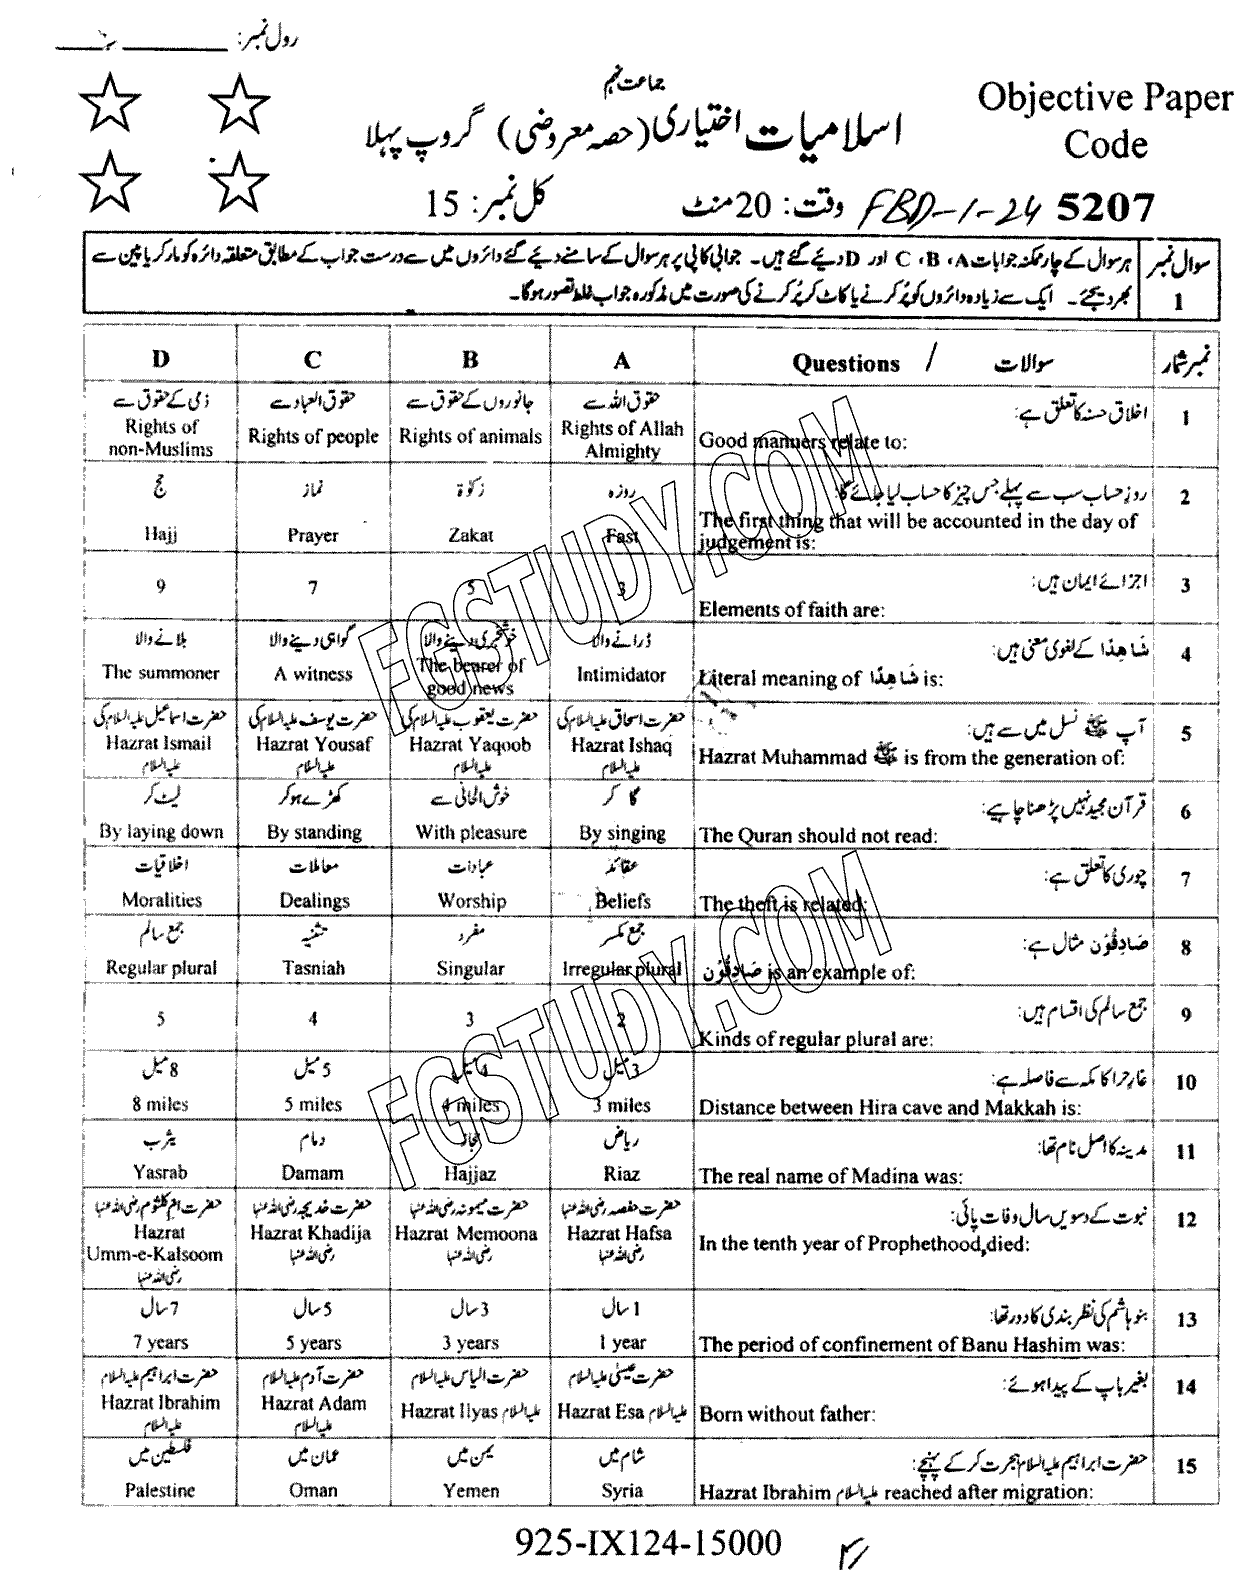 رول نمبر:
جماعت نہم
Objective Paper
Code
اسلامیات اختیاری (حصہ معروضی) گروپ پہلا
5207
FBD-1-24
وقت: 20 منٹ
کل نمبر: 15
سوال نمبر 1
ہر سوال کے چار ممکنہ جوابات A، B، C اور D دیئے گئے ہیں۔ جوابی کاپی پر ہر سوال کے سامنے دیئے گئے دائروں میں سے درست جواب کے مطابق متعلقہ دائرہ کو مارکر یا پین سے
بھر دیجئے۔ ایک سے زیادہ دائروں کو پُر کرنے یا کاٹ کر پُر کرنے کی صورت میں مذکورہ جواب غلط تصور ہوگا۔
نمبر شمار
سوالات / Questions
A
B
C
D
1
اخلاق حسنہ کا تعلق ہے:
Good manners relate to:
حقوق اللہ سے
Rights of Allah
Almighty
جانوروں کے حقوق سے
Rights of animals
حقوق العباد سے
Rights of people
ذمی کے حقوق سے
Rights of
non-Muslims
2
روزِ حساب سب سے پہلے جس چیز کا حساب لیا جائے گا:
The first thing that will be accounted in the day of
judgement is:
روزہ
Fast
زکوٰۃ
Zakat
نماز
Prayer
حج
Hajj
3
اجزائے ایمان ہیں:
Elements of faith are:
3
5
7
9
4
شَاهِدًا کے لغوی معنی ہیں:
Literal meaning of شَاهِدًا is:
ڈرانے والا
Intimidator
خوشخبری دینے والا
The bearer of
good news
گواہی دینے والا
A witness
بلانے والا
The summoner
5
آپ ﷺ نسل میں سے ہیں:
Hazrat Muhammad ﷺ is from the generation of:
حضرت اسحاق علیہ السلام کی
Hazrat Ishaq
علیہ السلام
حضرت یعقوب علیہ السلام کی
Hazrat Yaqoob
علیہ السلام
حضرت یوسف علیہ السلام کی
Hazrat Yousaf
علیہ السلام
حضرت اسماعیل علیہ السلام کی
Hazrat Ismail
علیہ السلام
6
قرآن مجید نہیں پڑھنا چاہیے:
The Quran should not read:
گا کر
By singing
خوش الحانی سے
With pleasure
کھڑے ہو کر
By standing
لیٹ کر
By laying down
7
چوری کا تعلق ہے:
The theft is related:
عقائد
Beliefs
عبادات
Worship
معاملات
Dealings
اخلاقیات
Moralities
8
صَادِقُوْن مثال ہے:
صَادِقُوْن is an example of:
جمع مکسر
Irregular plural
مفرد
Singular
تثنیہ
Tasniah
جمع سالم
Regular plural
9
جمع سالم کی اقسام ہیں:
Kinds of regular plural are:
2
3
4
5
10
غارِ حرا کا مکہ سے فاصلہ ہے:
Distance between Hira cave and Makkah is:
3 میل
3 miles
4 میل
4 miles
5 میل
5 miles
8 میل
8 miles
11
مدینہ کا اصل نام تھا:
The real name of Madina was:
ریاض
Riaz
حجاز
Hajjaz
دمام
Damam
یثرب
Yasrab
12
نبوت کے دسویں سال وفات پائی:
In the tenth year of Prophethood,died:
حضرت حفصہ رضی اللہ عنہا
Hazrat Hafsa
رضی اللہ عنہا
حضرت میمونہ رضی اللہ عنہا
Hazrat Memoona
رضی اللہ عنہا
حضرت خدیجہ رضی اللہ عنہا
Hazrat Khadija
رضی اللہ عنہا
حضرت ام کلثوم رضی اللہ عنہا
Hazrat
Umm-e-Kalsoom
رضی اللہ عنہا
13
بنو ہاشم کی نظر بندی کا دور تھا:
The period of confinement of Banu Hashim was:
1 سال
1 year
3 سال
3 years
5 سال
5 years
7 سال
7 years
14
بغیر باپ کے پیدا ہوئے:
Born without father:
حضرت عیسیٰ علیہ السلام
Hazrat Esa علیہ السلام
حضرت الیاس علیہ السلام
Hazrat Ilyas علیہ السلام
حضرت آدم علیہ السلام
Hazrat Adam
علیہ السلام
حضرت ابراہیم علیہ السلام
Hazrat Ibrahim
علیہ السلام
15
حضرت ابراہیم علیہ السلام ہجرت کر کے پہنچے:
Hazrat Ibrahim علیہ السلام reached after migration:
شام میں
Syria
یمن میں
Yemen
عمان میں
Oman
فلسطین میں
Palestine
925-IX124-15000
FGSTUDY.COM
FGSTUDY.COM